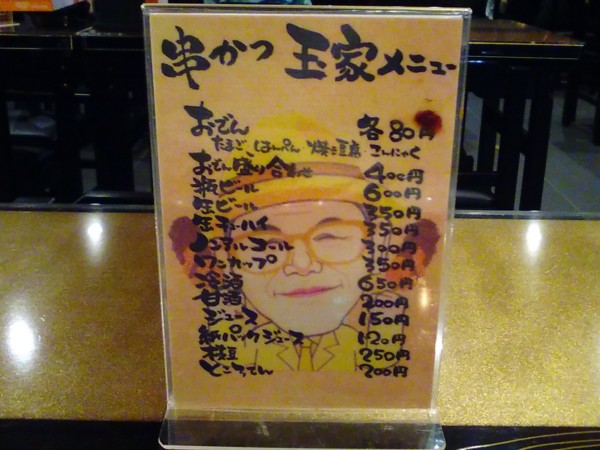 串かつ 玉家 メニュー
おでん 各80円
たまご はんぺん 焼き豆腐 こんにゃく
おでん盛り合わせ 400円
瓶ビール 600円
缶ビール 350円
缶チューハイ 350円
ノンアルコール 300円
ワンカップ 350円
冷酒 650円
甘酒 200円
ジュース 150円
紙パックジュース 120円
枝豆 250円
ところてん 200円